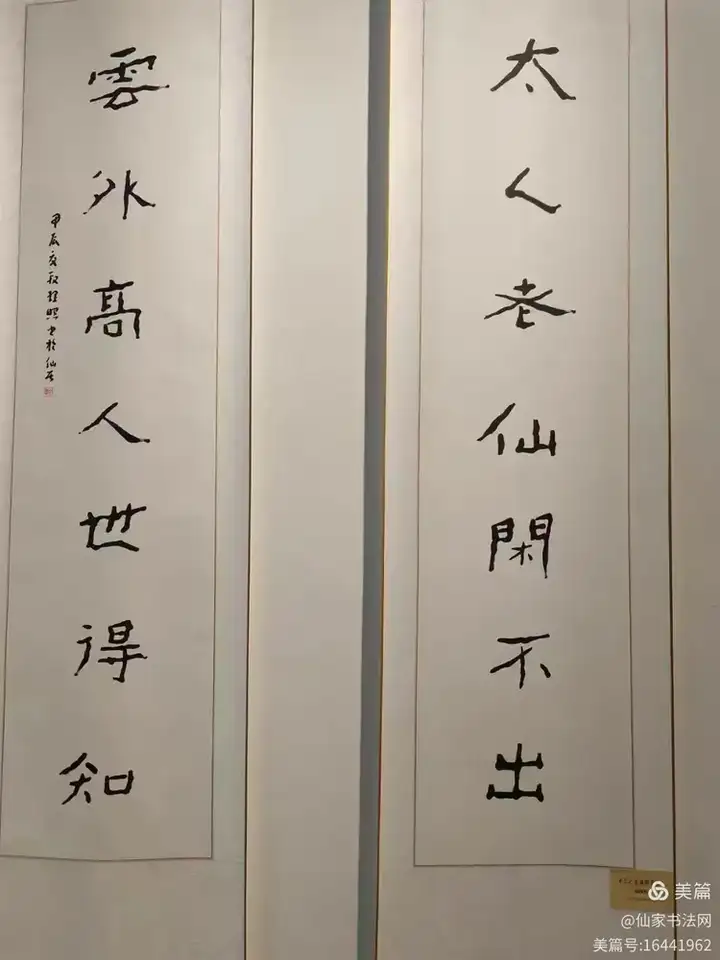 太人老仙閑不出
雲外高人世得知
甲辰夏段程照书於仙居
美篇
@仙家书法网
美篇号:16441962